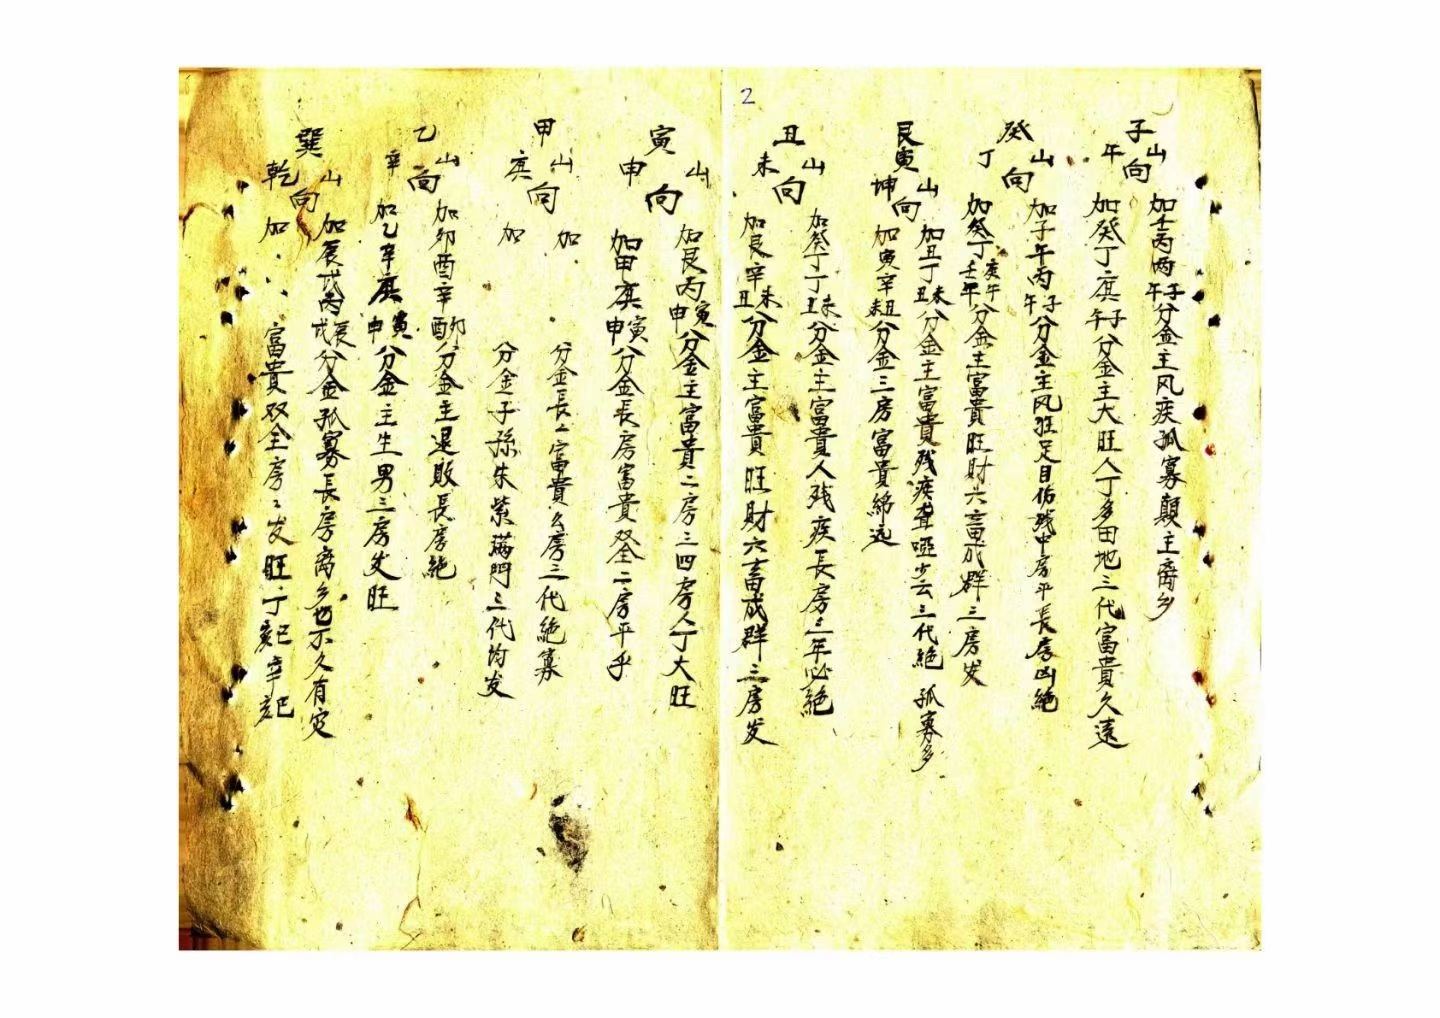 2
子山午向
加壬丙丙子午分金主风疾孤寡顛主离乡
加癸丁庚子午分金主大旺人丁多田地三代富貴久遠
癸山丁向
加子午丙子午分金主风 足目 残中房平長房凶絕
加癸丁庚午壬 分金主富貴旺財六畜成群三房发
艮寅山坤向
加丑丁未丑分金主富貴残疾聋哑少云三代絕 孤寡多
加寅辛丑未分金三房富貴綿远
丑山未向
加癸丁丁未丑分金主富貴人残疾長房三年必絕
加艮辛未丑分金主富貴旺財六畜成群三房发
寅山申向
加艮丙寅申分金主富貴二房三四房人丁大旺
加甲庚寅申分金長房富貴双全二房平乎
甲山庚向
加 分金長二富貴么房三代絕寡
加 分金子孫朱紫满門三代均发
乙山辛向
加卯酉辛卯酉分金主退敗長房絕
加乙辛庚寅申分金主生男三房发旺
巽山乾向
加辰戌丙辰戌分金孤寡長房离乡也不久有灾
加 富貴双全房房发旺丁 辛